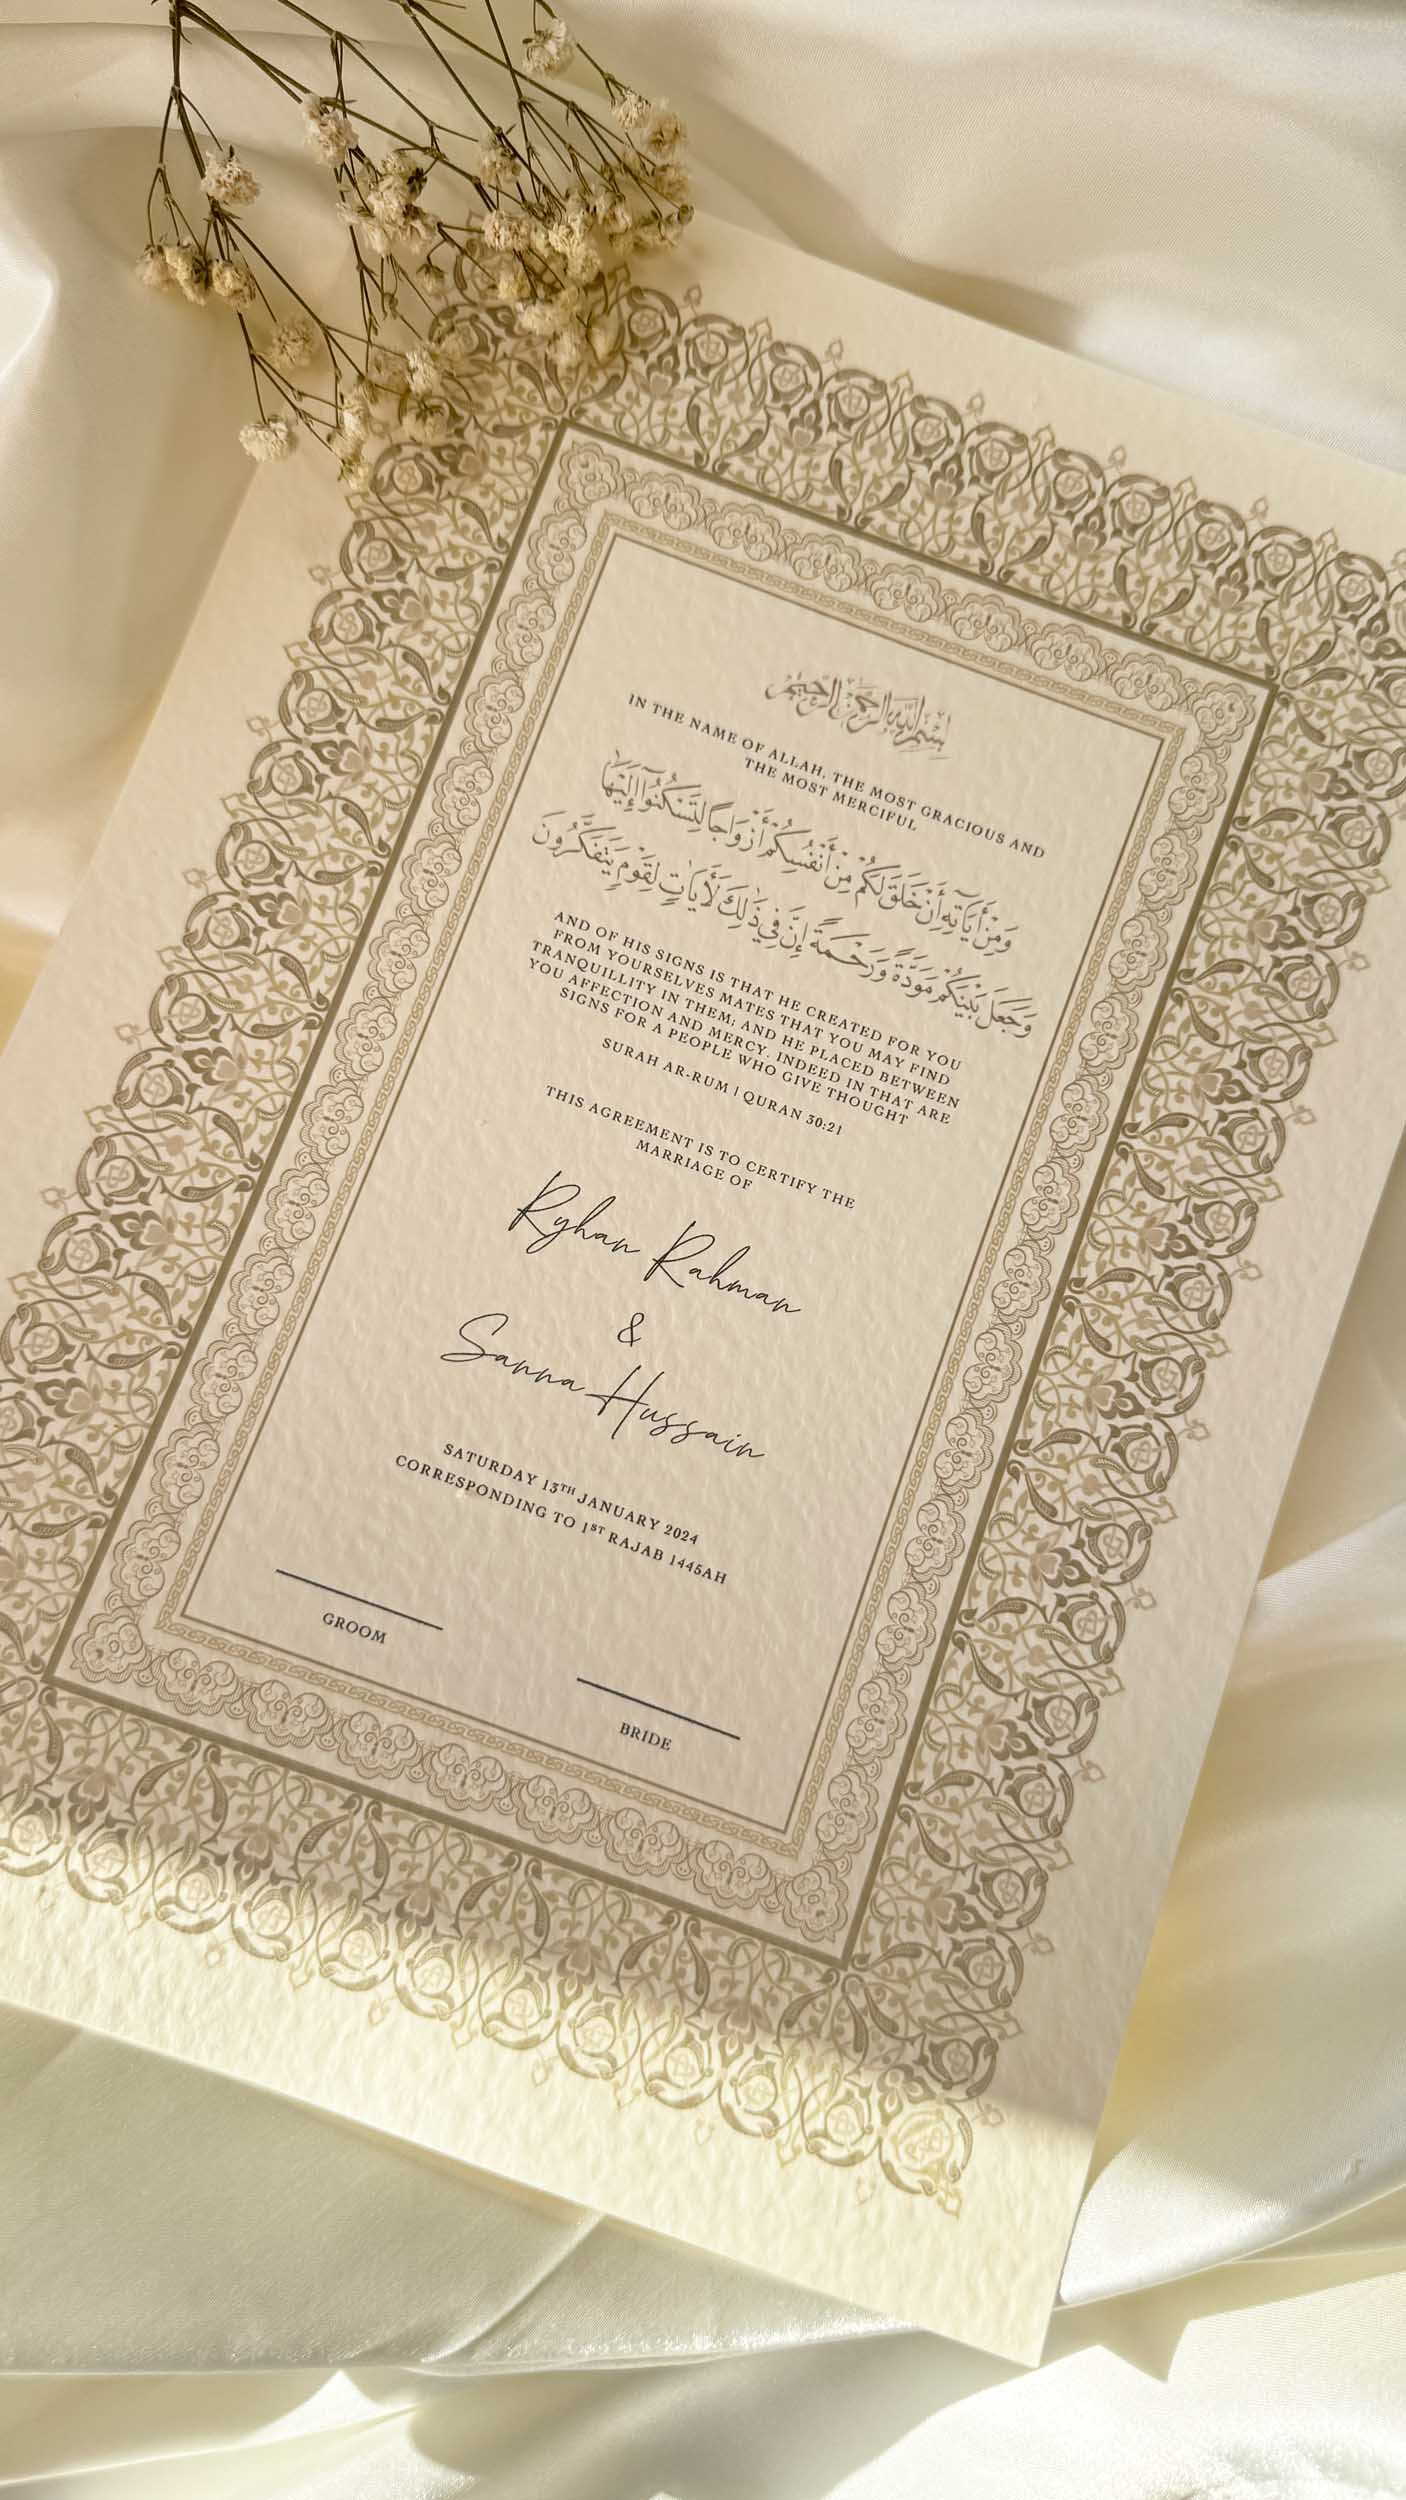 بِسْمِ اللهِ الرَّحْمٰنِ الرَّحِيْمِ
IN THE NAME OF ALLAH, THE MOST GRACIOUS AND
THE MOST MERCIFUL
وَمِنْ أَيَاتِهِ أَنْ خَلَقَ لَكُمْ مِنْ أَنْفُسِكُمْ أَزْوَاجًا لِتَسْكُنُوا إِلَيْهَا
وَجَعَلَ بَيْنَكُمْ مَوَدَّةً وَرَحْمَةً إِنَّ فِي ذَٰلِكَ لَأَيَاتٍ لِقَوْمٍ يَتَفَكَّرُونَ
AND OF HIS SIGNS IS THAT HE CREATED FOR YOU
FROM YOURSELVES MATES THAT YOU MAY FIND
TRANQUILLITY IN THEM; AND HE PLACED BETWEEN
YOU AFFECTION AND MERCY. INDEED IN THAT ARE
SIGNS FOR A PEOPLE WHO GIVE THOUGHT
SURAH AR-RUM | QURAN 30:21
THIS AGREEMENT IS TO CERTIFY THE
MARRIAGE OF
Ryhan Rahman
&
Sanna Hussain
SATURDAY 13TH JANUARY 2024
CORRESPONDING TO 1ST RAJAB 1445AH
GROOM
BRIDE